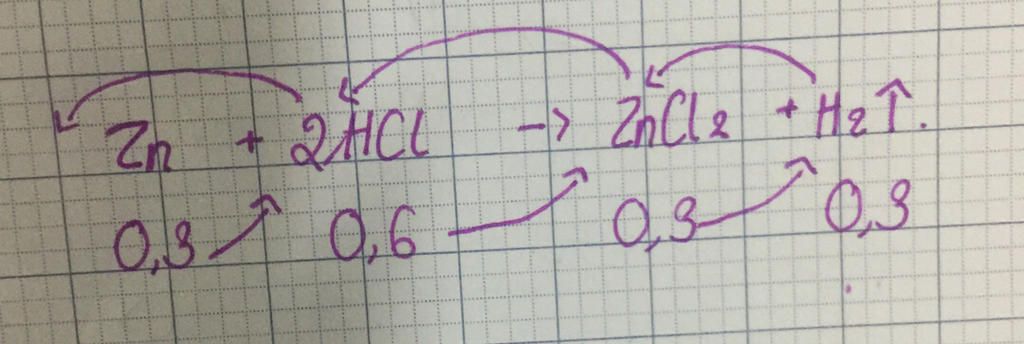 Zn + 2HCl -> ZnCl2 + H2↑.
0,3 0,6 0,3 0,3